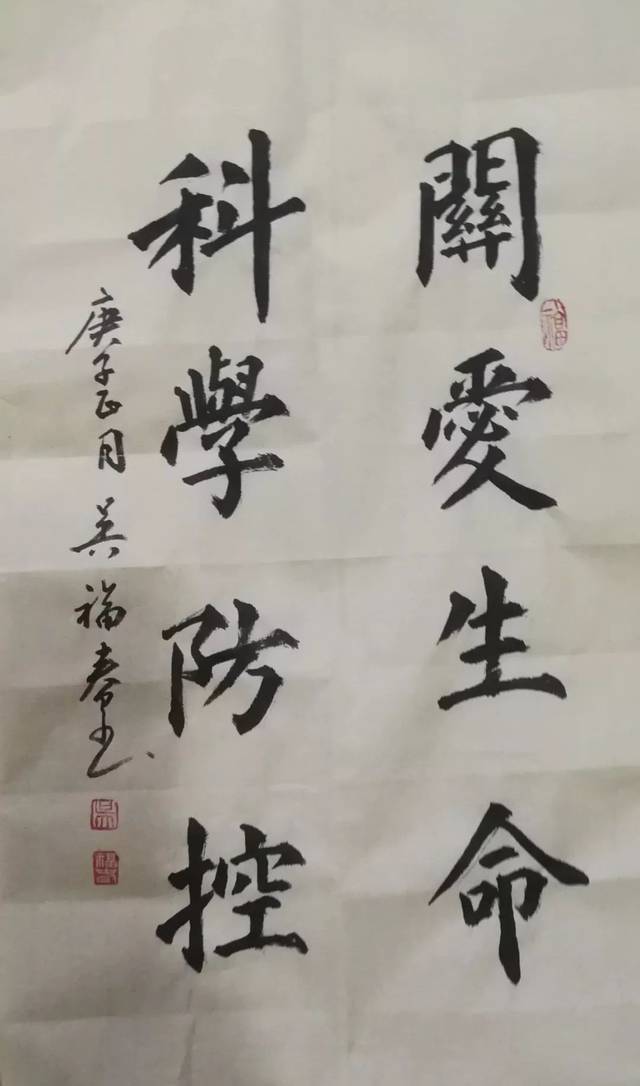 關愛生命
科學防控
庚子正月吴福春书